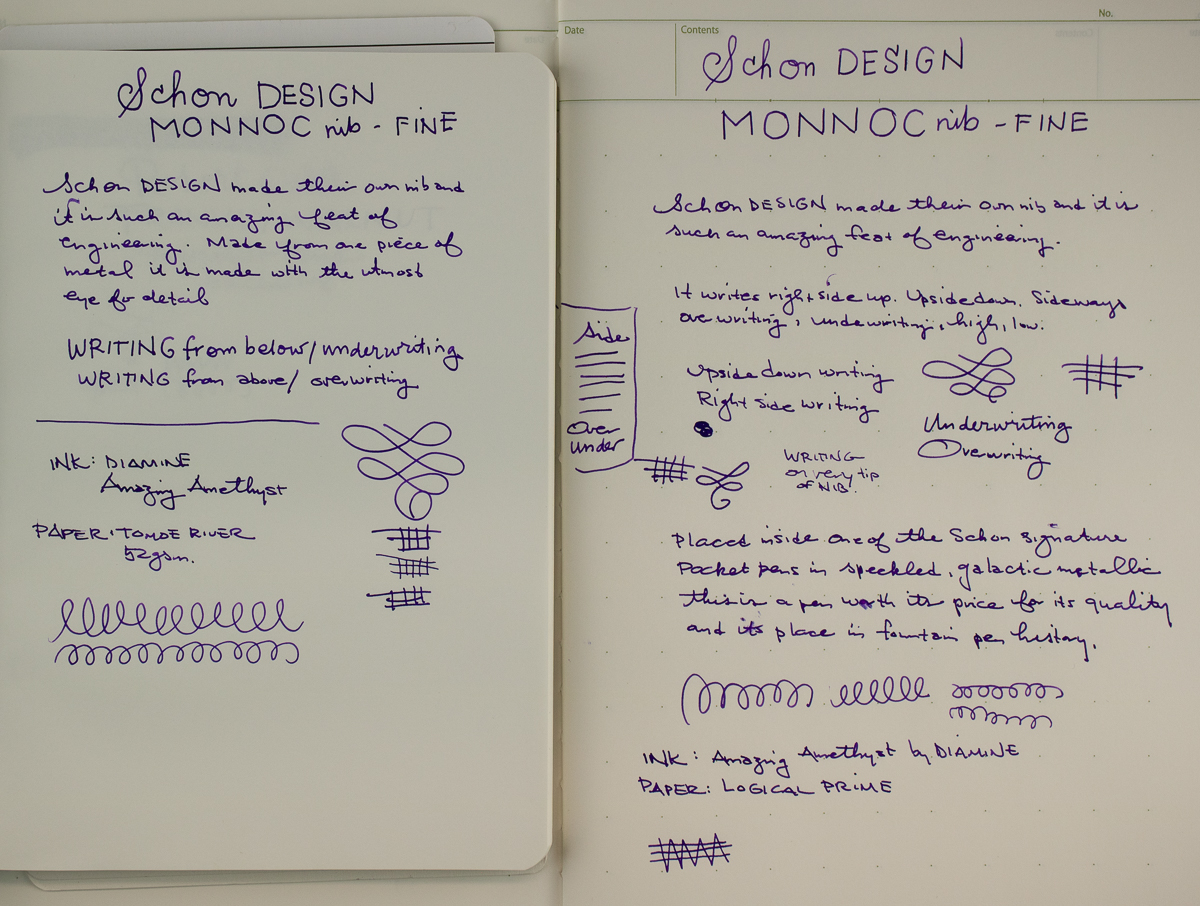 Schon DESIGN
MONNOC nib - FINE
Schon DESIGN made their own nib and
it is such an amazing feat of
engineering. Made from one piece of
metal it is made with the utmost
eye for detail
WRITING from below/underwriting
WRITING from above/overwriting
INK: DIAMINE
Amazing Amethyst
PAPER: TOMOE RIVER
52gsm.
Date
Contents
No.
Schon DESIGN
MONNOC nib - FINE
Schon DESIGN made their own nib and it is
such an amazing feat of engineering.
It writes right side up. Upside down. Sideways
overwriting, underwriting, high, low.
Side
Over
Under
Upside down writing
Right side writing
Underwriting
Overwriting
WRITING
on very tip
of NIB.
Placed inside one of the Schon signature
Pocket pens in speckled, galactic metallic
this is a pen worth its price for its quality
and its place in fountain pen history.
INK: Amazing Amethyst by DIAMINE
PAPER: LOGICAL PRIME